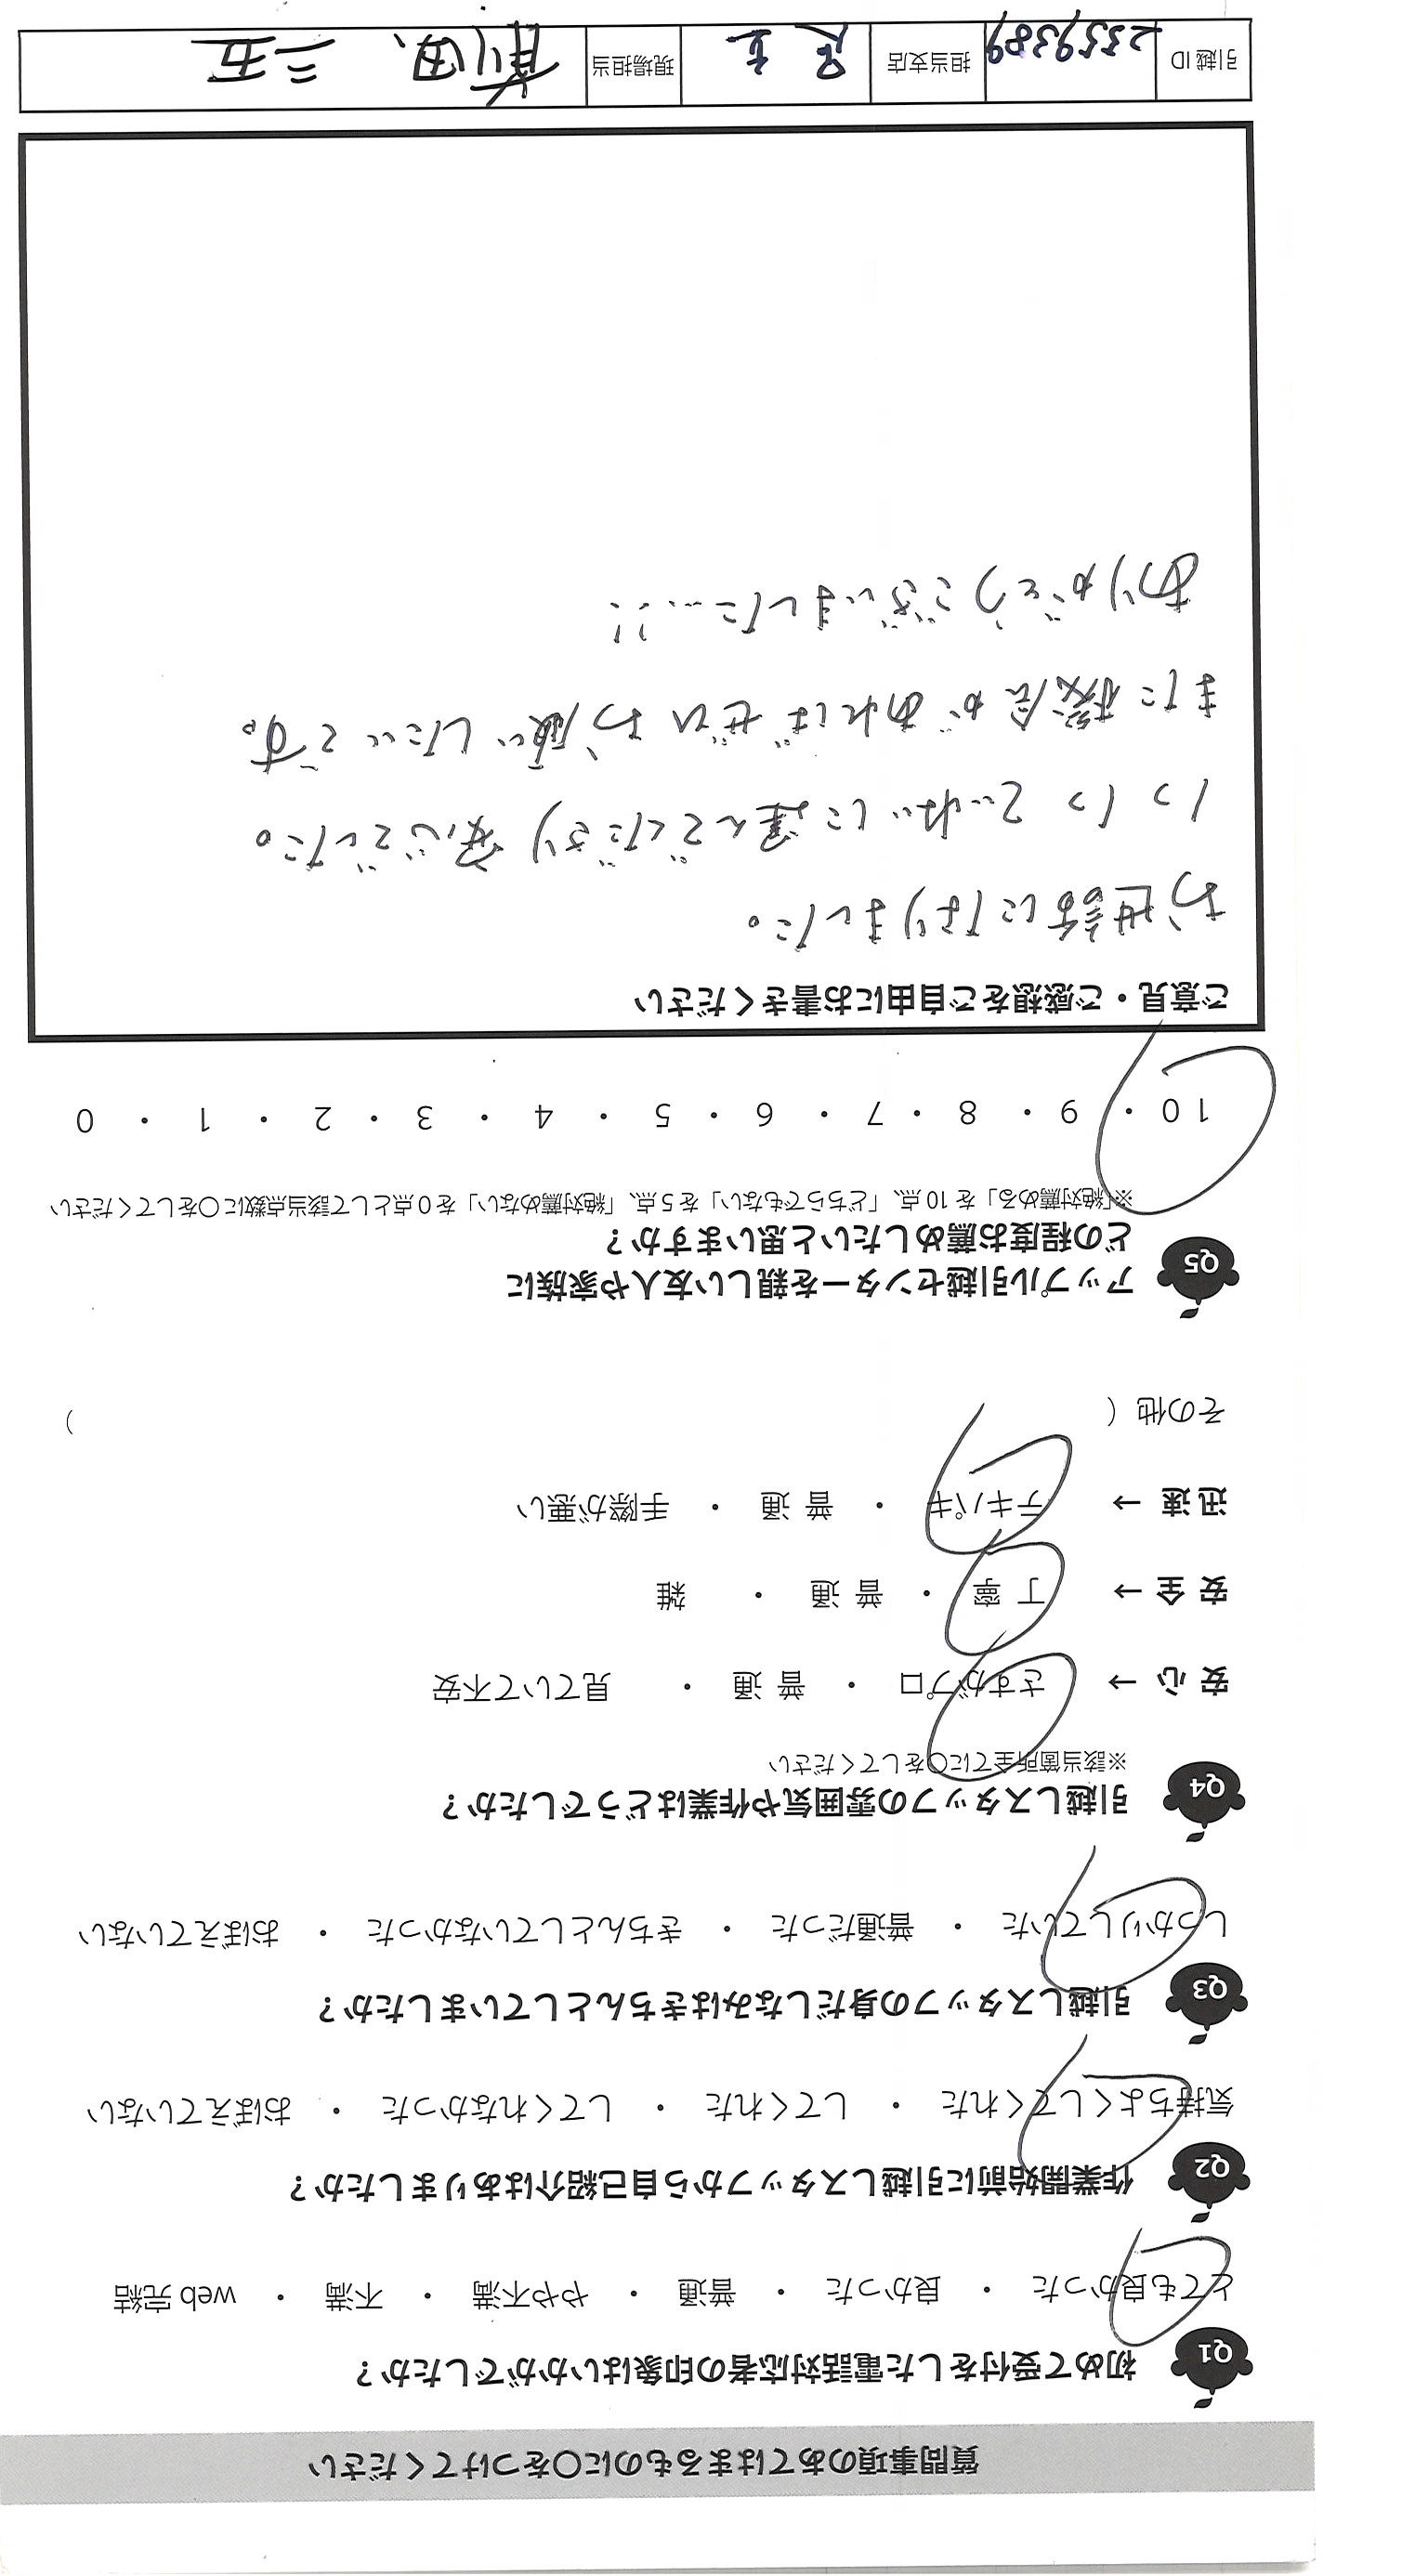 質問事項のあてはまるものに○をつけてください
Q1 初めて受付をした電話対応者の印象はいかがでしたか？
とても良かった ・ 良かった ・ 普通 ・ やや不満 ・ 不満 ・ web 完結
Q2 作業開始前に引越しスタッフから自己紹介はありましたか？
気持ちよくしてくれた ・ してくれた ・ してくれなかった ・ おぼえていない
Q3 引越しスタッフの身だしなみはきちんとしていましたか？
しっかりしていた ・ 普通だった ・ きちんとしていなかった ・ おぼえていない
Q4 引越しスタッフの雰囲気や作業はどうでしたか？
※該当箇所全てに○をしてください
安 心 → さすがプロ ・ 普 通 ・ 見ていて不安
安 全 → 丁 寧 ・ 普 通 ・ 雑
迅 速 → テキパキ ・ 普 通 ・ 手際が悪い
その他（ ）
Q5 アップル引越センターを親しい友人や家族に
どの程度お薦めしたいと思いますか？
※「絶対薦める」を 10 点、「どちらでもない」を 5 点、「絶対薦めない」を 0 点として該当点数に○をしてください
10 ・ 9 ・ 8 ・ 7 ・ 6 ・ 5 ・ 4 ・ 3 ・ 2 ・ 1 ・ 0
ご意見・ご感想をご自由にお書きください
お世話になりました。
1つ1つていねいに運んでくださり安心でした。
また機会があればぜひお願いしたいです。
ありがとうございました…!!
引越 ID 2359389 担当支店 現場担当 前田、三五